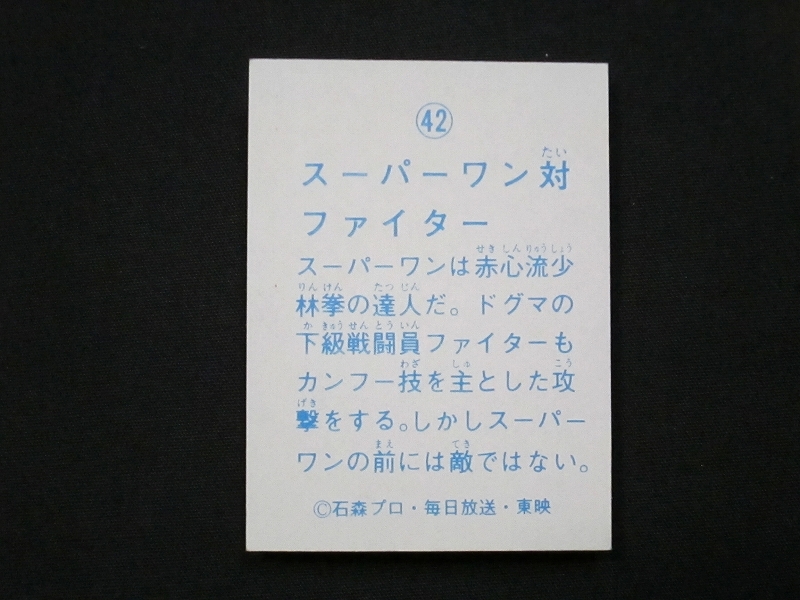 42
スーパーワン対
ファイター
スーパーワンは赤心流少
林拳の達人だ。ドグマの
下級戦闘員ファイターも
カンフー技を主とした攻
撃をする。しかしスーパー
ワンの前には敵ではない。
©石森プロ・毎日放送・東映